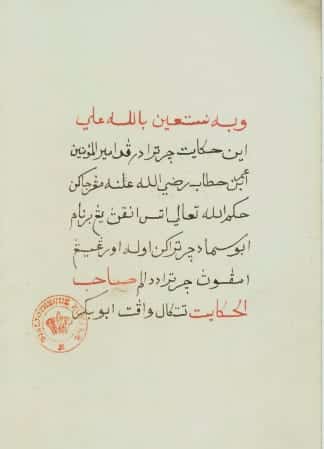 وبه نستعين بالله علي
اين حكايت چرترا در قد امير المؤنين
عمر ابن حطاب رضي الله عنه مڠرجاكن
حكم الله تعالي اتس انقڽ يڠ برنام
ابو سماد چرتراكن اوله اورڠ يڠ
امڤوڽ چرترا ددالم صاحب
الحكايت تتكال واقت ابو بكر
BIBLIOTHEQUE